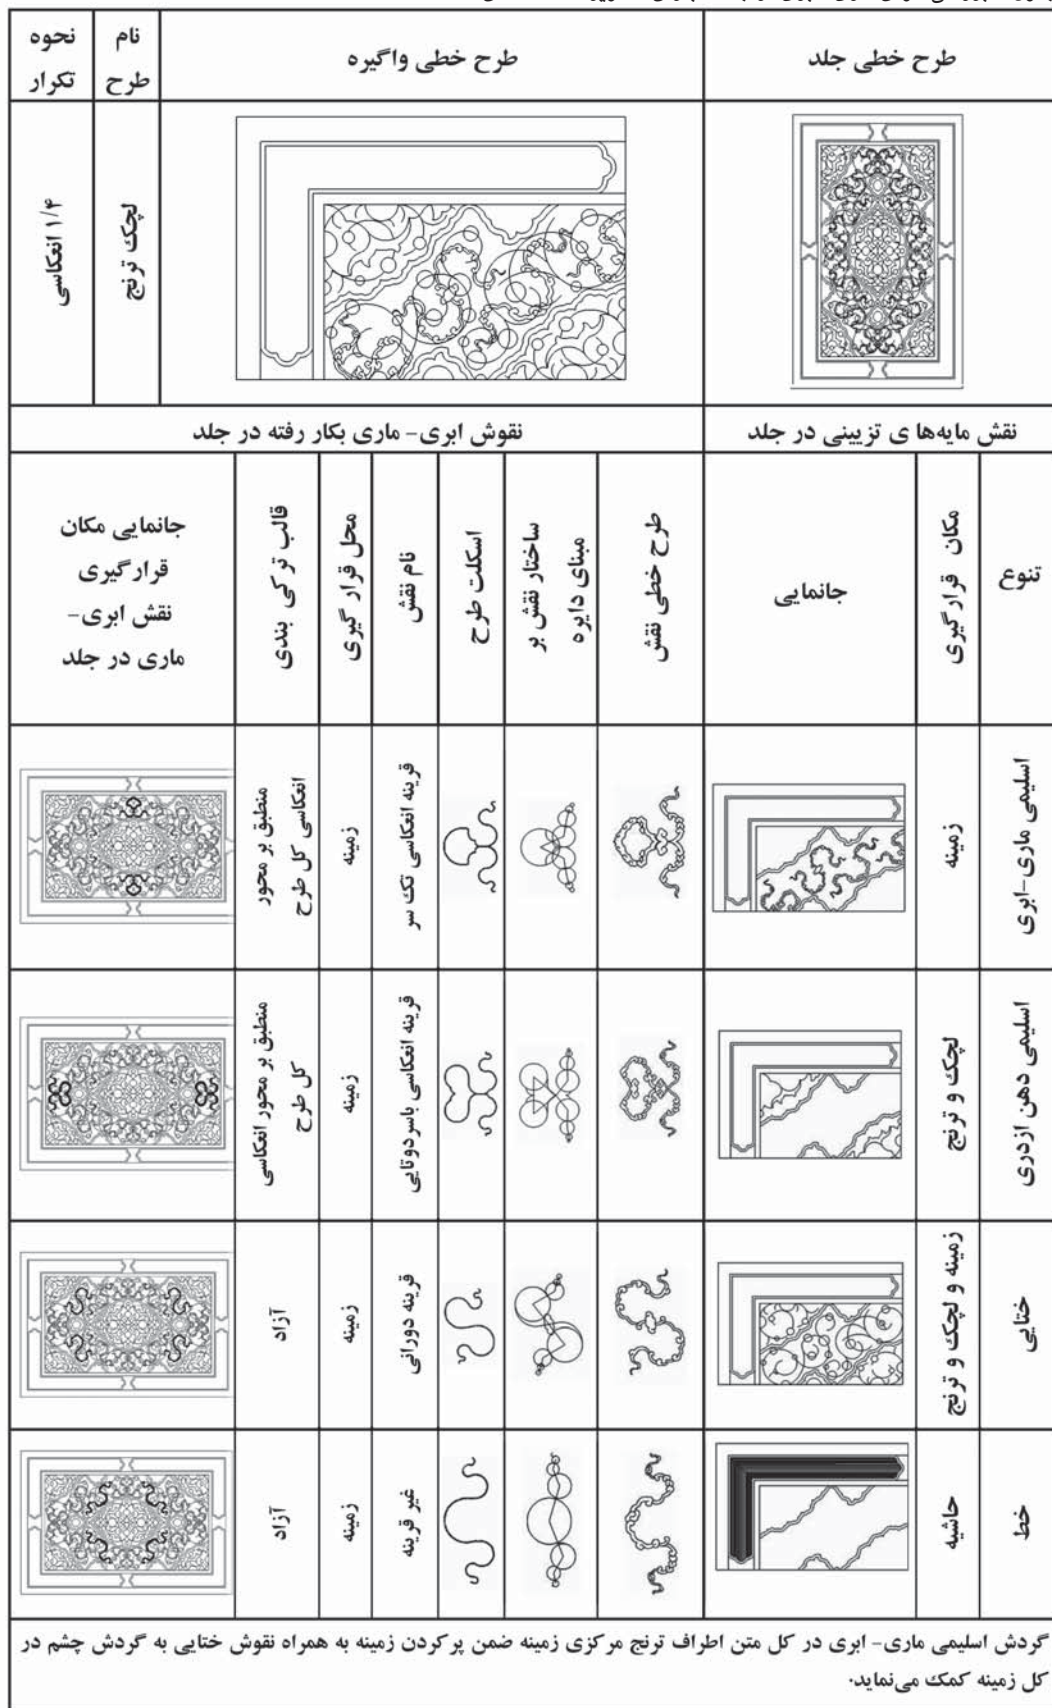 طرح خطی جلد
طرح خطی واگیره
نام طرح
نحوه تکرار
لچک ترنج
۱/۴ انعکاسی
نقش مایه‌ها ی تزیینی در جلد
نقوش ابری- ماری بکار رفته در جلد
تنوع
مکان قرارگیری
جانمایی
طرح خطی نقش
ساختار نقش بر مبنای دایره
اسکلت طرح
نام نقش
محل قرار گیری
قالب ترکی بندی
جانمایی مکان
قرارگیری
نقش ابری-
ماری در جلد
اسلیمی ماری-ابری
زمینه
قرینه انعکاسی تک سر
زمینه
منطبق بر محور
انعکاسی کل طرح
اسلیمی دهن اژدری
لچک و ترنج
قرینه انعکاسی باسردوتایی
زمینه
منطبق بر محور انعکاسی
کل طرح
ختایی
زمینه و لچک و ترنج
قرینه دورانی
زمینه
آزاد
خط
حاشیه
غیر قرینه
زمینه
آزاد
گردش اسلیمی ماری- ابری در کل متن اطراف ترنج مرکزی زمینه ضمن پرکردن زمینه به همراه نقوش ختایی به گردش چشم در
کل زمینه کمک می‌نماید.